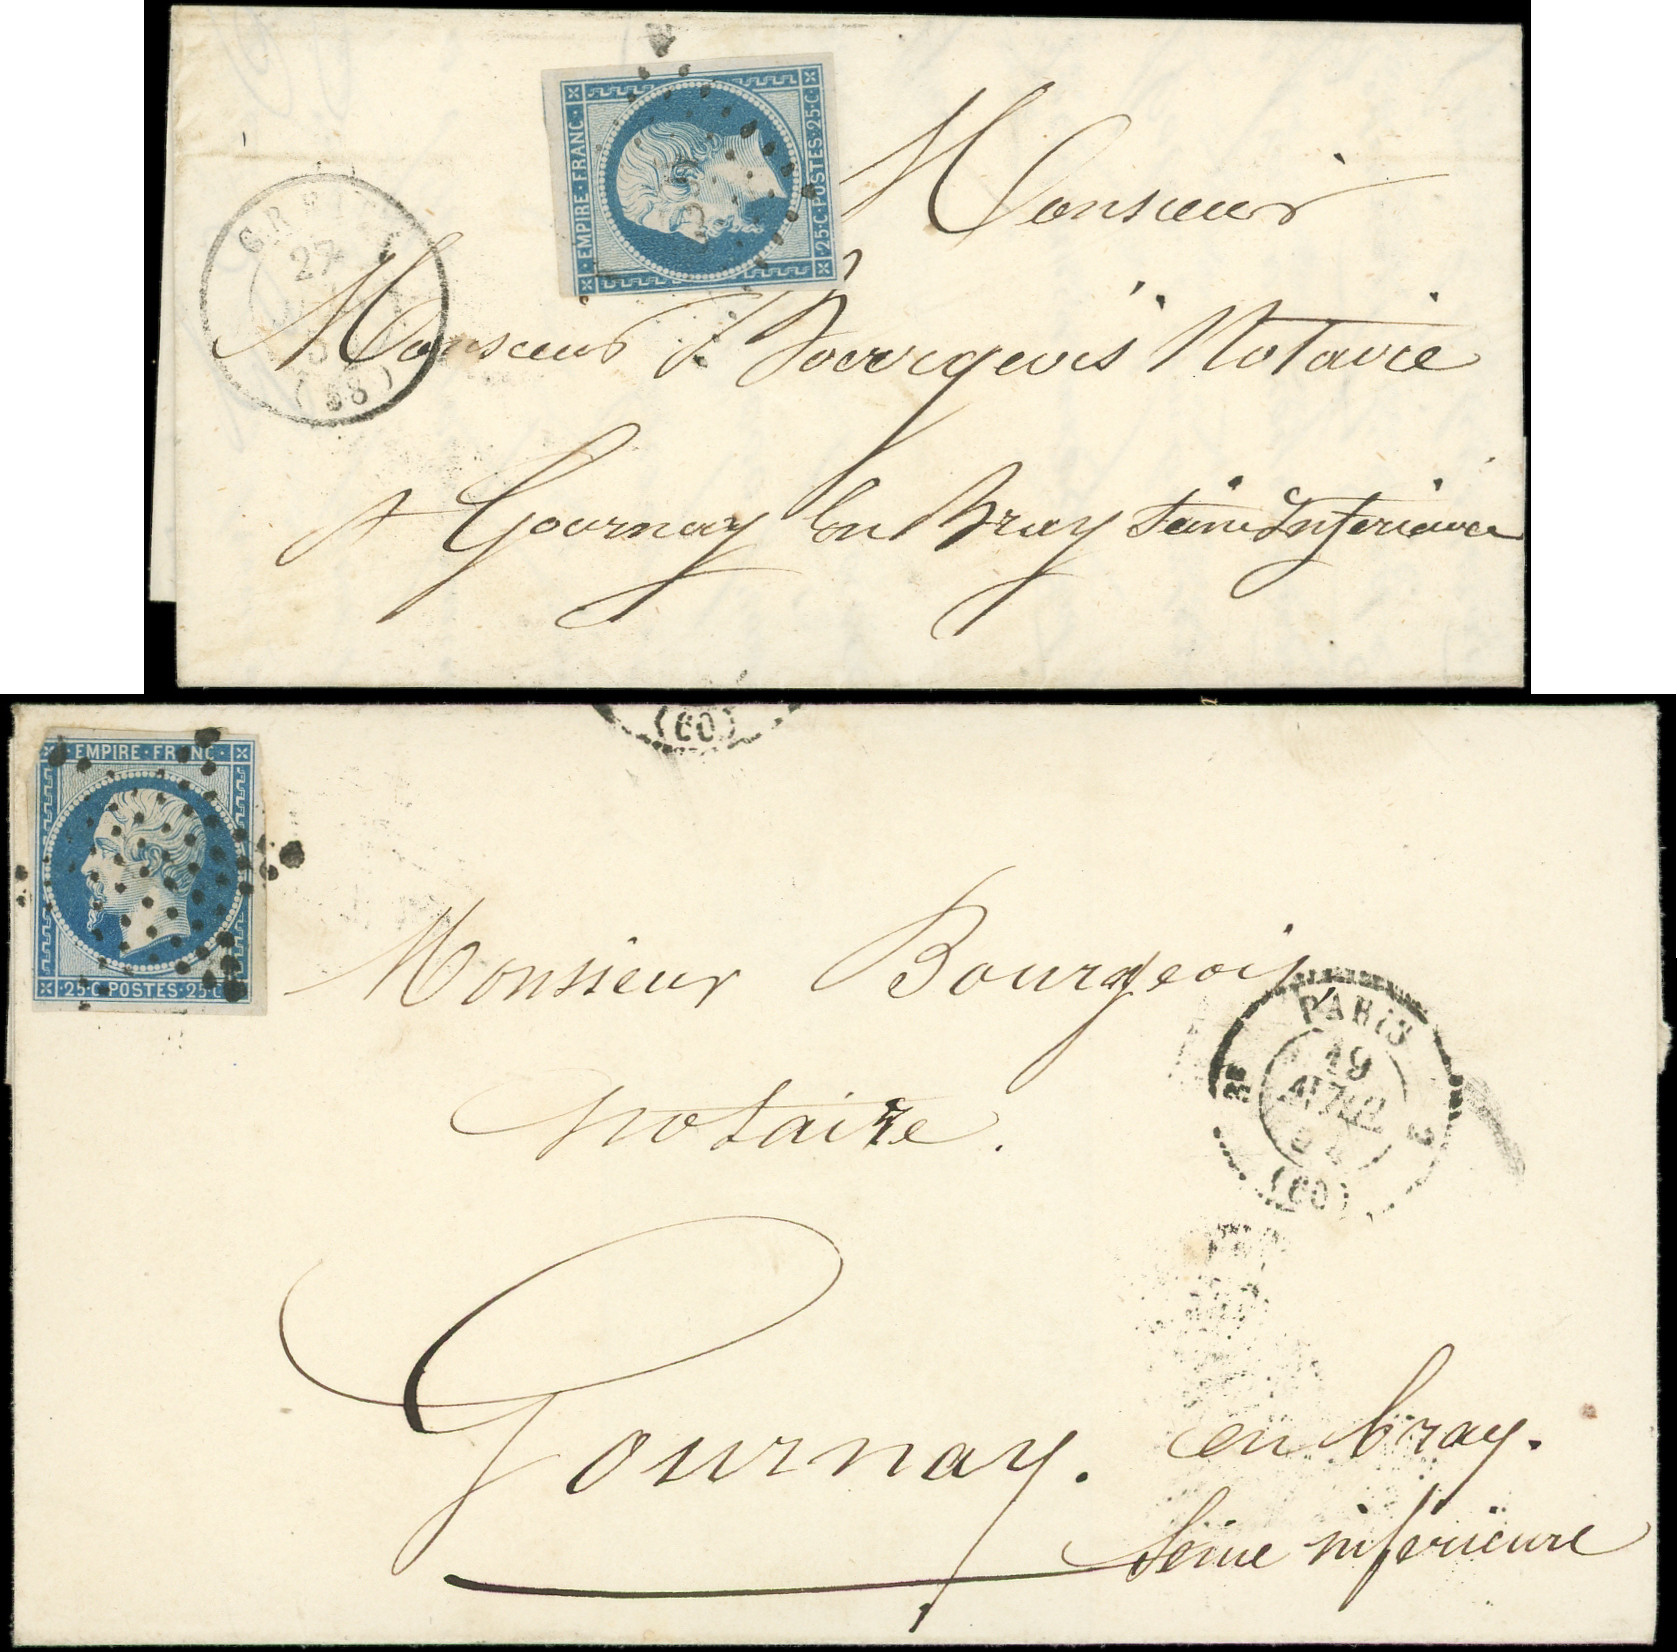 EMPIRE · FRANC ·
25 · C · POSTES · 25 · C
27
(58)
Monsieur
Monsieur Bourgeois Notaire
A Gournay En Bray Seine Inferieure
(60)
EMPIRE · FRANC ·
· 25 · C · POSTES · 25 · C
Monsieur Bourgeois
notaire.
PARIS
19
(60)
Gournay. en bray.
Seine inferieure